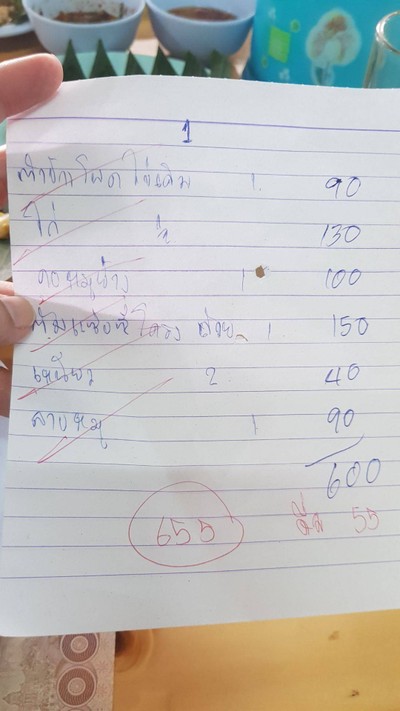 1
ตำข้าวโพด ไข่เค็ม 1 90
ไก่ 130
คอหมูย่าง 1 100
ต้มแซ่บซี่โครง อ่อน 1 150
เหนียว 2 40
ลาบหมู 1 90
600
655 ดื่ม 55